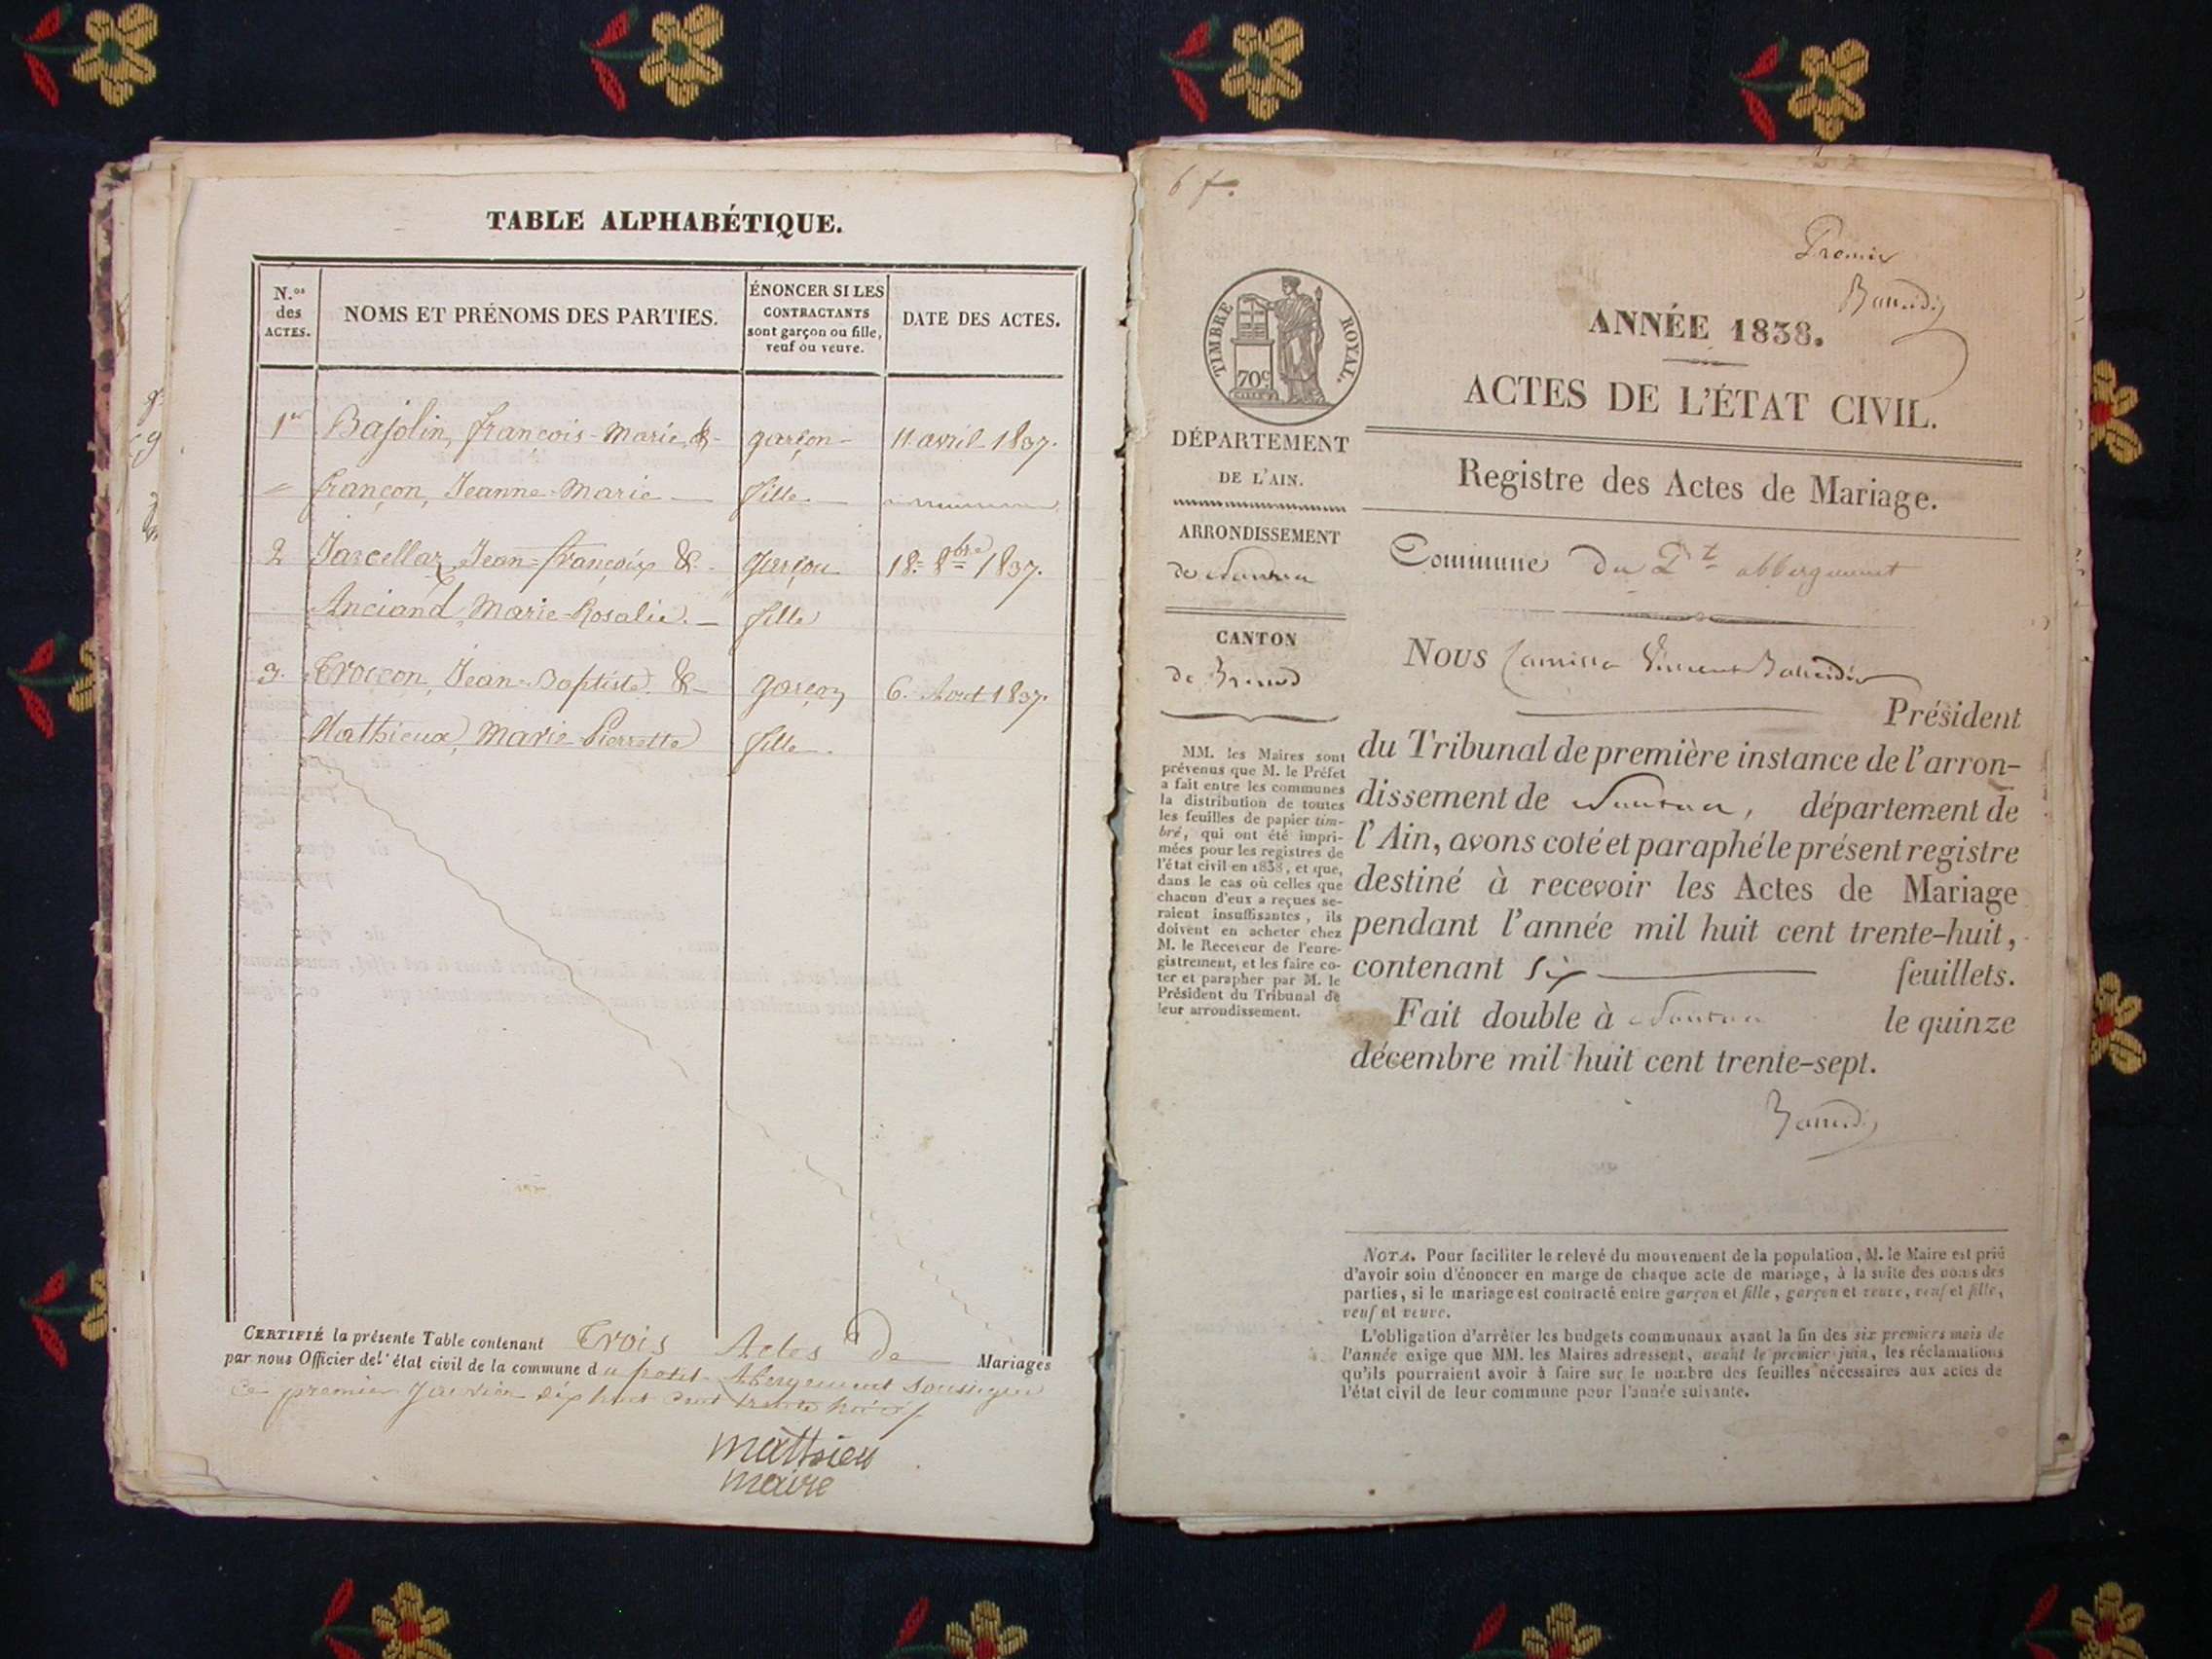 TABLE ALPHABÉTIQUE.
N.os des ACTES.
NOMS ET PRÉNOMS DES PARTIES.
ÉNONCER SI LES CONTRACTANTS sont garçon ou fille, veuf ou veuve.
DATE DES ACTES.
1er Bajolin, françois-Marie, & garçon 11 avril 1837.
françon, Jeanne-Marie fille
2 Jean-françois & garçon 18 8bre 1837.
Anciand, Marie-Rosalie. fille
3. Troccon, Jean-Baptiste & garçon 6. Aout 1837.
Mathieux, Marie Pierrette fille
CERTIFIÉ la présente Table contenant Trois Actes de Mariages
par nous Officier de l'état civil de la commune du petit Abergement soussigné
ce premier Janvier dix huit cent trente
Mathieu
maire
6 f.
Premier
Baudin
TIMBRE ROYAL.
70c
ANNÉE 1838.
ACTES DE L'ÉTAT CIVIL.
DÉPARTEMENT
DE L'AIN.
Registre des Actes de Mariage.
ARRONDISSEMENT
de Nantua
Commune Du Pt abbergement
CANTON
de Brenod
Nous Camille Vincent
Président
du Tribunal de première instance de l'arron-
dissement de Nantua, département de
l'Ain, avons coté et paraphé le présent registre
destiné à recevoir les Actes de Mariage
pendant l'année mil huit cent trente-huit,
contenant six feuillets.
Fait double à Nantua le quinze
décembre mil huit cent trente-sept.
MM. les Maires sont
prévenus que M. le Préfet
a fait entre les communes
la distribution de toutes
les feuilles de papier tim-
bré, qui ont été impri-
mées pour les registres de
l'état civil en 1838, et que,
dans le cas où celles que
chacun d'eux a reçues se-
raient insuffisantes, ils
doivent en acheter chez
M. le Receveur de l'enre-
gistrement, et les faire co-
ter et parapher par M. le
Président du Tribunal de
leur arrondissement.
NOTA. Pour faciliter le relevé du mouvement de la population, M. le Maire est prié
d'avoir soin d'énoncer en marge de chaque acte de mariage, à la suite des noms des
parties, si le mariage est contracté entre garçon et fille, garçon et veuve, veuf et fille,
veuf et veuve.
L'obligation d'arrêter les budgets communaux avant la fin des six premiers mois de
l'année exige que MM. les Maires adressent, avant le premier juin, les réclamations
qu'ils pourraient avoir à faire sur le nombre des feuilles nécessaires aux actes de
l'état civil de leur commune pour l'année suivante.